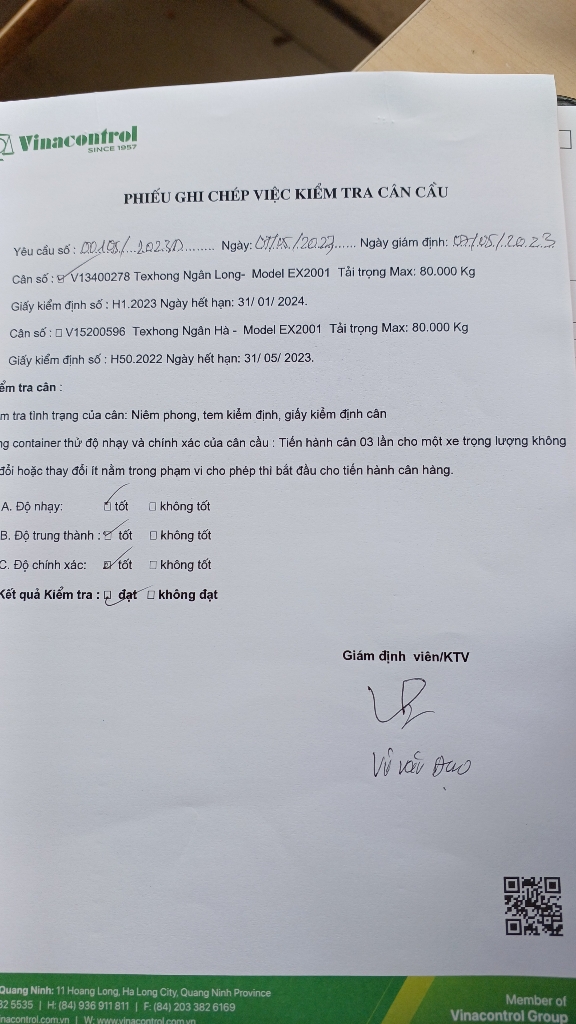 Vinacontrol
SINCE 1957
PHIẾU GHI CHÉP VIỆC KIỂM TRA CÂN CẦU
Yêu cầu số : 00105/...2023/D........ Ngày: 07/05/2023...... Ngày giám định: 07/05/.2023
Cân số : V13400278 Texhong Ngân Long- Model EX2001 Tải trọng Max: 80.000 Kg
Giấy kiểm định số : H1.2023 Ngày hết hạn: 31/ 01/ 2024.
Cân số : □ V15200596 Texhong Ngân Hà - Model EX2001 Tải trọng Max: 80.000 Kg
Giấy kiểm định số : H50.2022 Ngày hết hạn: 31/ 05/ 2023.
ểm tra cân :
m tra tình trạng của cân: Niêm phong, tem kiểm định, giấy kiểm định cân
ng container thử độ nhạy và chính xác của cân cầu : Tiến hành cân 03 lần cho một xe trọng lượng không
đổi hoặc thay đổi ít nằm trong phạm vi cho phép thì bắt đầu cho tiến hành cân hàng.
A. Độ nhạy: ☑ tốt □ không tốt
B. Độ trung thành : ☑ tốt □ không tốt
C. Độ chính xác: ☑ tốt □ không tốt
Kết quả Kiểm tra : ☑ đạt □ không đạt
Giám định viên/KTV
Vũ Văn Đạo
Quang Ninh: 11 Hoang Long, Ha Long City, Quang Ninh Province
82 5535 | H: (84) 936 911 811 | F: (84) 203 382 6169
nacontrol.com.vn | W: www.vinacontrol.com.vn
Member of
Vinacontrol Group